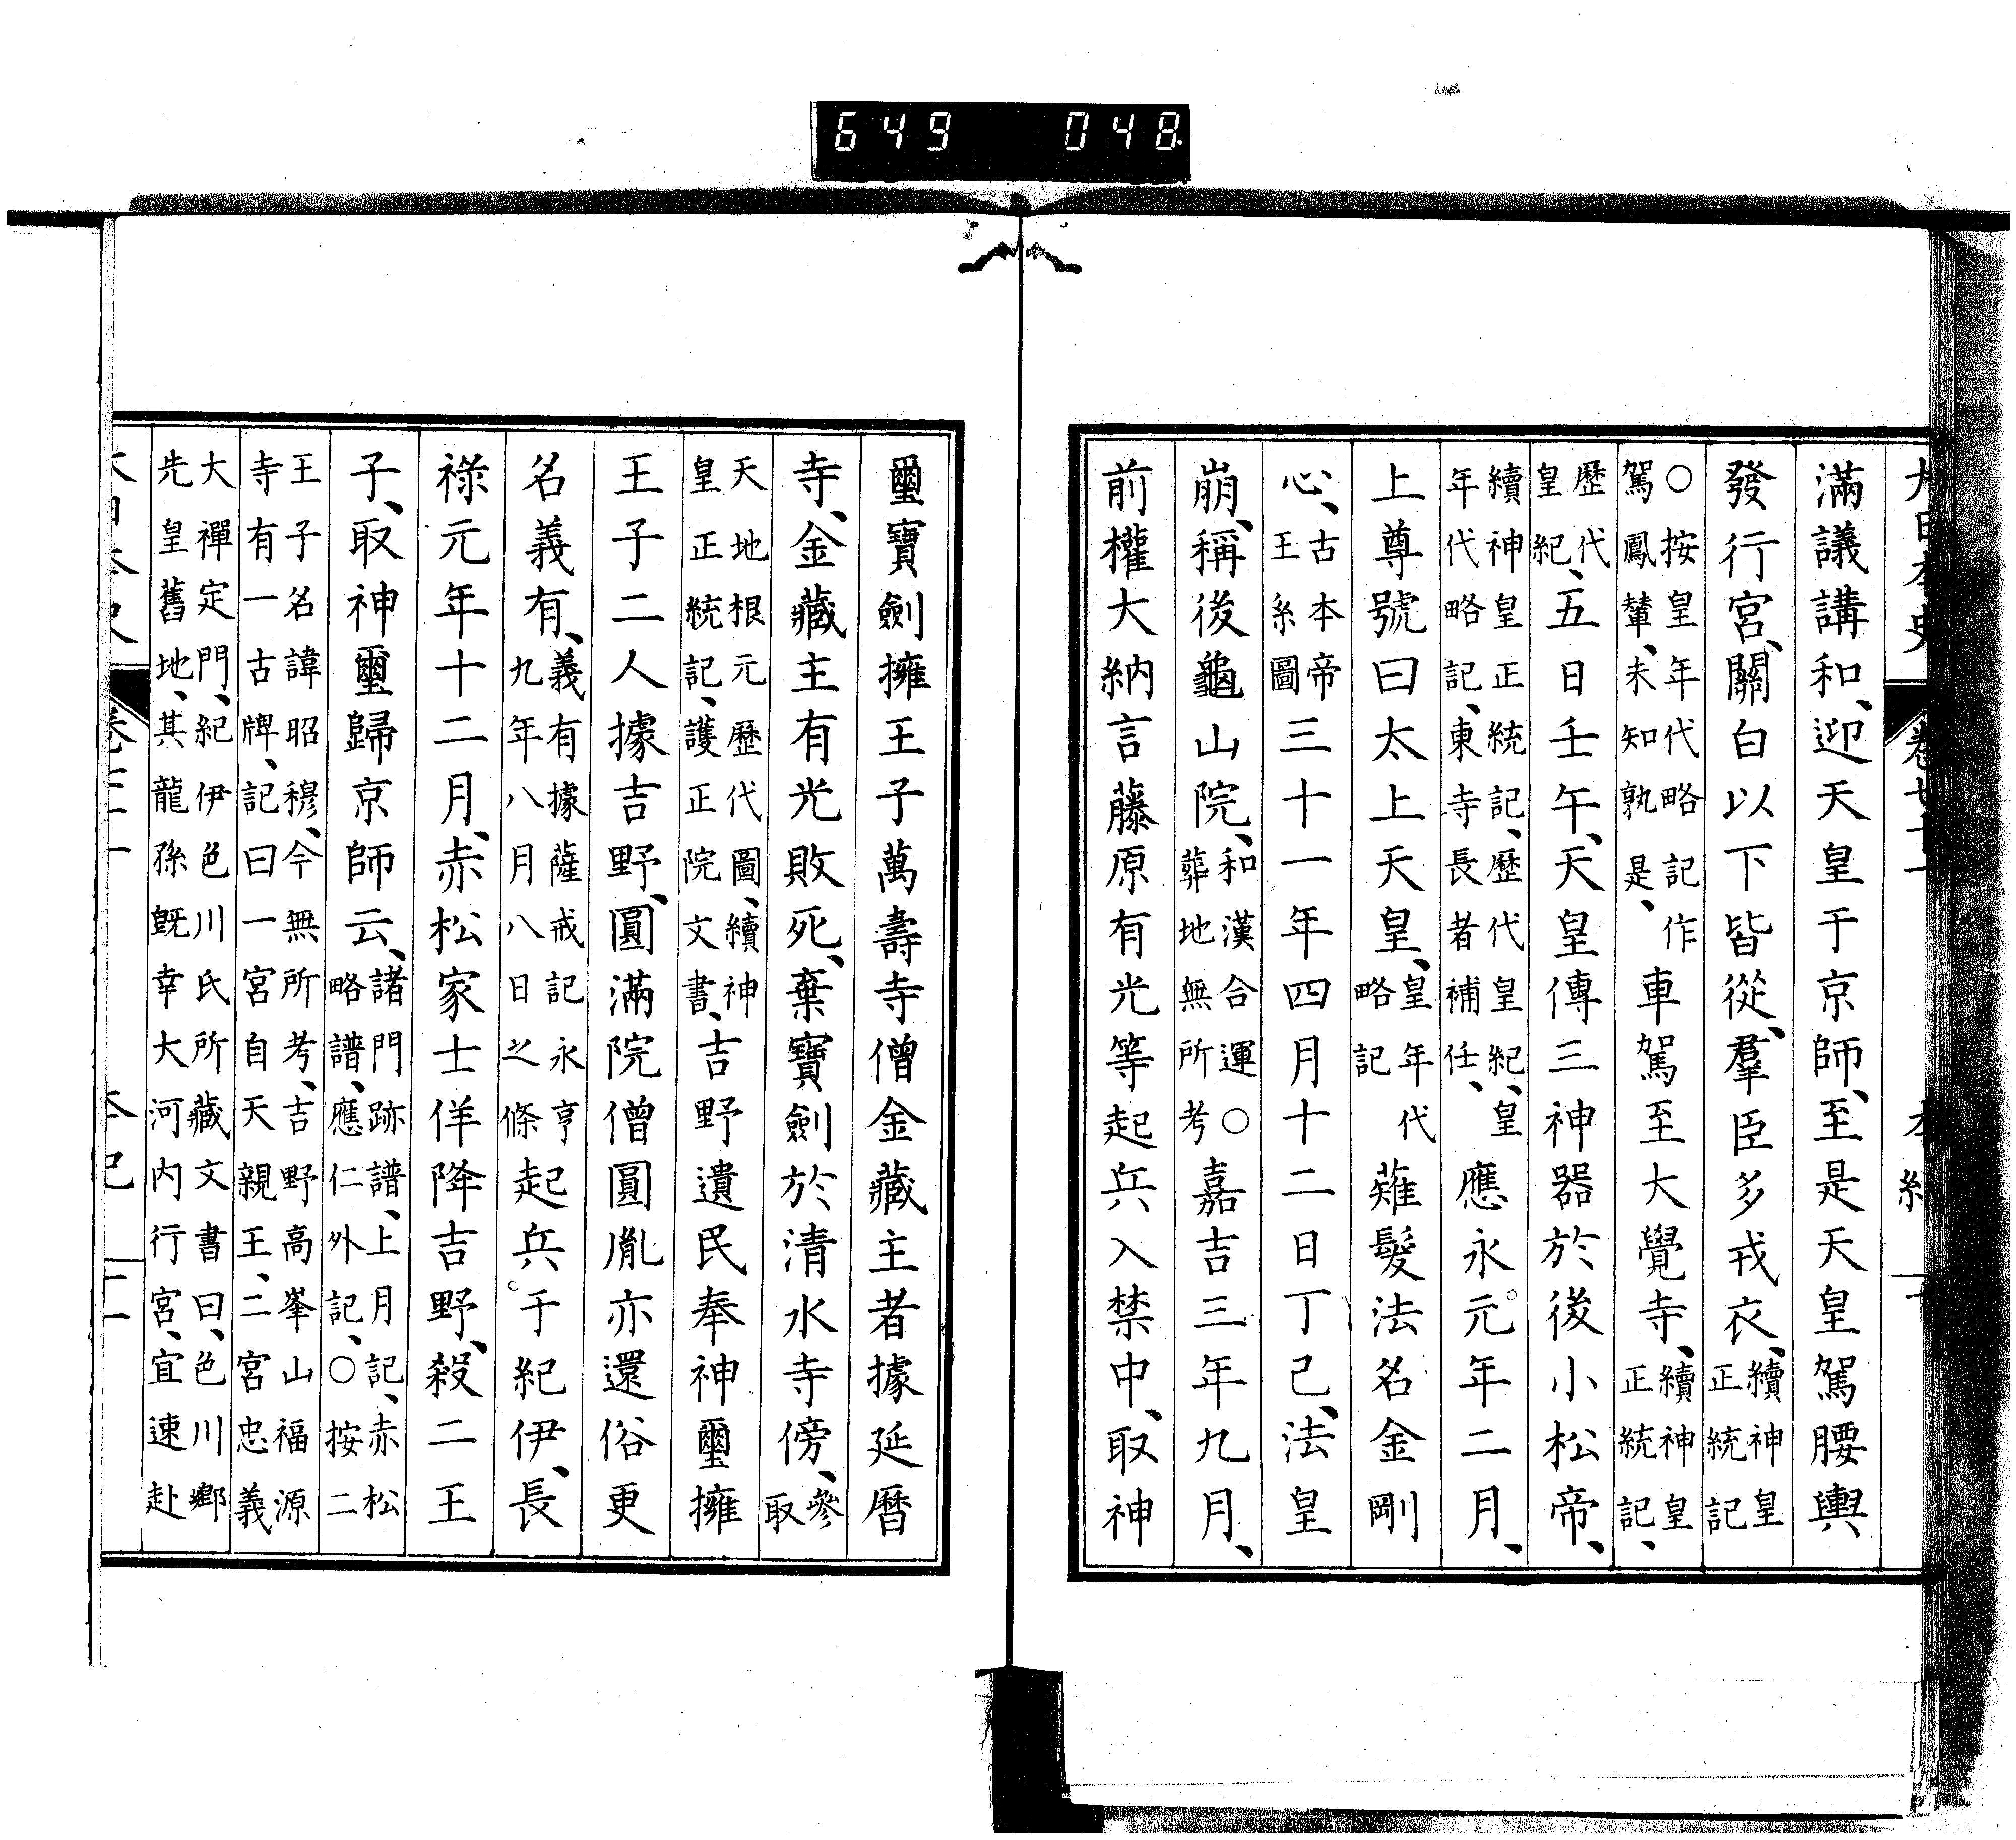 649 048
大日本史 卷七十一 本紀
滿議講和、迎天皇于京師、至是天皇駕腰輿
發行宮、關白以下皆從、羣臣多戎衣、續神皇正統記
○按皇年代略記作鳳輦、未知孰是、車駕至大覺寺、續神皇正統記、
歷代皇紀、五日壬午、天皇傳三神器於後小松帝、
續神皇正統記、歷代皇紀、皇年代略記、東寺長者補任、應永元年二月、
上尊號曰太上天皇、皇年代略記薙髮法名金剛
心、古本帝王系圖三十一年四月十二日丁己、法皇
崩、稱後龜山院、和漢合運○葬地無所考嘉吉三年九月、
前權大納言藤原有光等起兵入禁中、取神
璽寶劍擁王子萬壽寺僧金藏主者據延曆
寺、金藏主有光敗死、棄寶劍於清水寺傍、參取
天地根元歷代圖、續神皇正統記、護正院文書、吉野遺民奉神璽擁
王子二人據吉野、圓滿院僧圓胤亦還俗更
名義有、義有據薩戒記永亨九年八月八日之條起兵于紀伊、長
祿元年十二月、赤松家士佯降吉野、殺二王
子、取神璽歸京師云、諸門跡譜、上月記、赤松略譜、應仁外記、○按二
王子名諱昭穆、今無所考、吉野高峯山福源寺有一古牌、記曰一宮自天親王、二宮忠義
大禪定門、紀伊色川氏所藏文書曰、色川鄉先皇舊地、其龍孫既幸大河內行宮、宜速赴